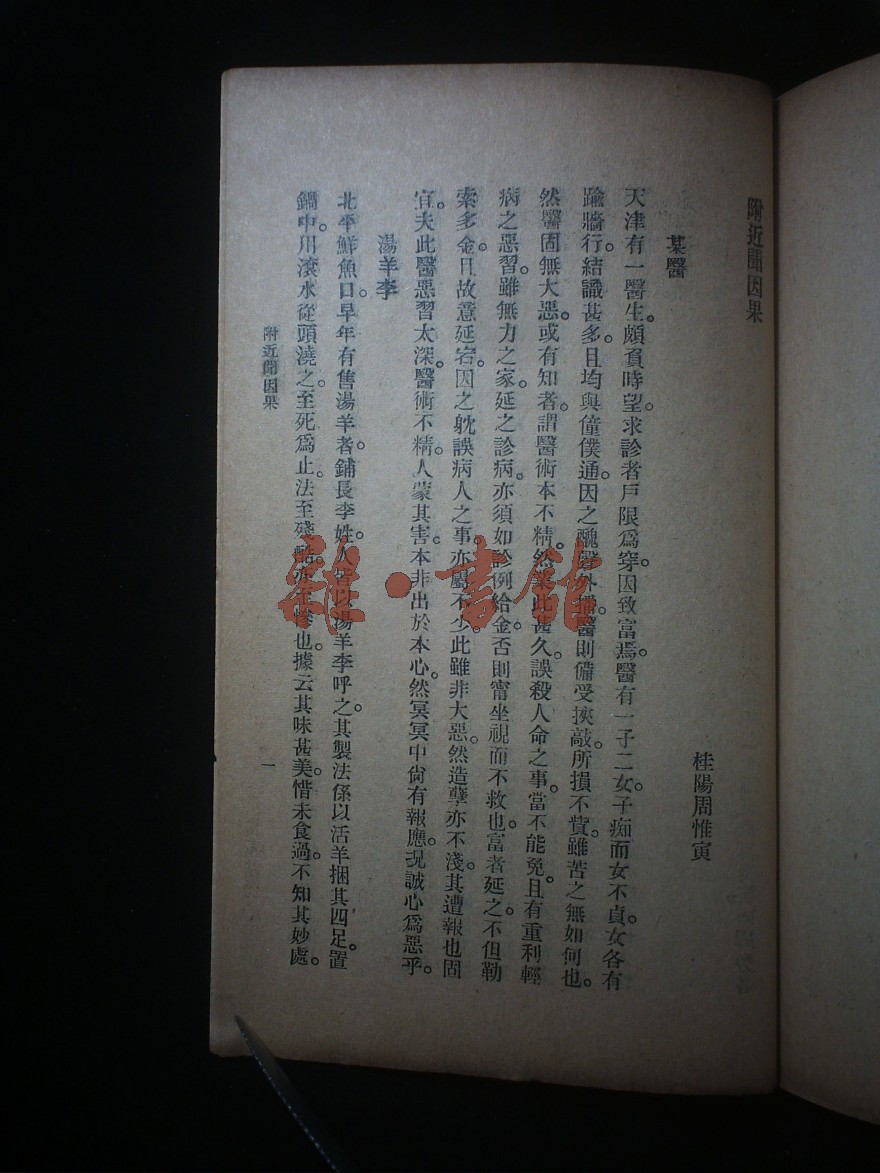 附近聞因果
桂陽周惟寅
某醫
天津有一醫生。頗負時望。求診者戶限爲穿。因致富焉。醫有一子二女。子痴而女不貞。女各有
踰牆行。結識甚多。且均與僮僕通。因之醜聲外播。醫則備受挾敲。所損不貲。雖苦之無如何也。
然醫固無大惡。或有知者。謂醫術本不精。然業此甚久。誤殺人命之事。當不能免。且有重利輕
病之惡習。雖無力之家。延之診病。亦須如診例給金。否則甯坐視而不救也。富者延之。不但勒
索多金。且故意延宕。因之躭誤病人之事。亦屬不少。此雖非大惡。然造孽亦不淺。其遭報也固
宜。夫此醫惡習太深。醫術不精。人蒙其害。本非出於本心。然冥冥中尙有報應。況誠心爲惡乎。
湯羊李
北平鮮魚口。早年有售湯羊者。鋪長李姓。人皆以湯羊李呼之。其製法係以活羊捆其四足。置
鍋中。用滾水從頭澆之。至死爲止。法至殘酷。亦至慘也。據云其味甚美。惜未食過。不知其妙處。
附近聞因果
一
雜·書館